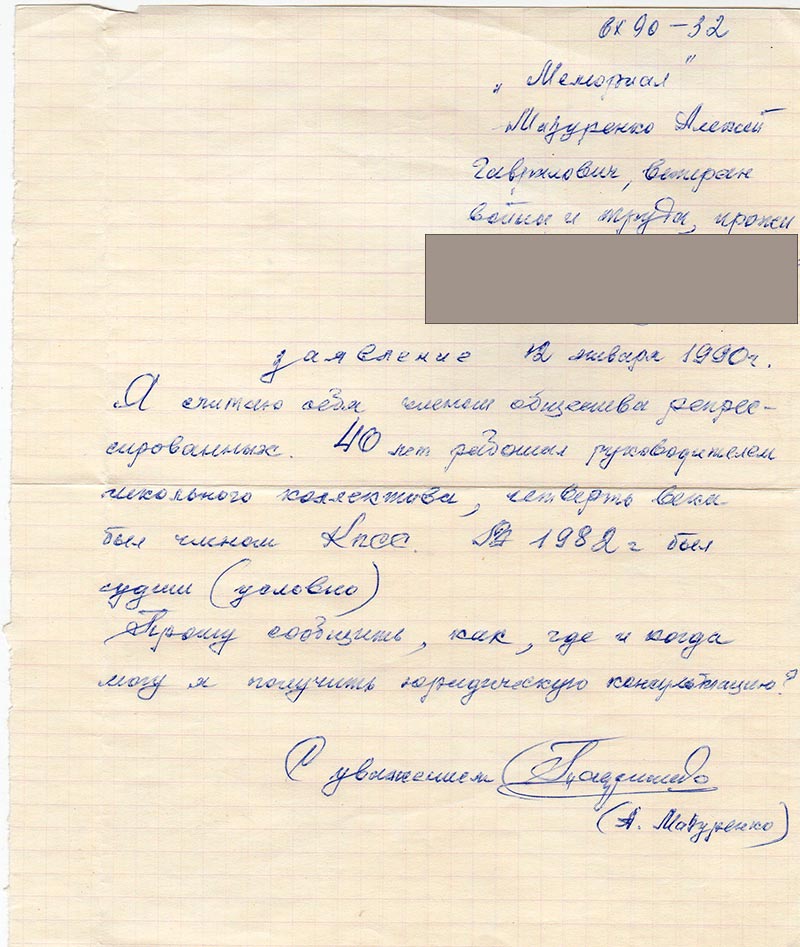 вх 90-32
„Мемориал"
Мазуренко Алексей
Гаврилович, ветеран
войны и труда, прожи
заявление 12 января 1990г.
Я считаю себя членом общества репрес-
сированных. 40 лет работал руководителем
школьного коллектива, четверть века
был членом КПСС. В 1982 г был
судим (условно)
Прошу сообщить, как, где и когда
могу я получить юридическую консультацию?
С уважением
(А. Мазуренко)